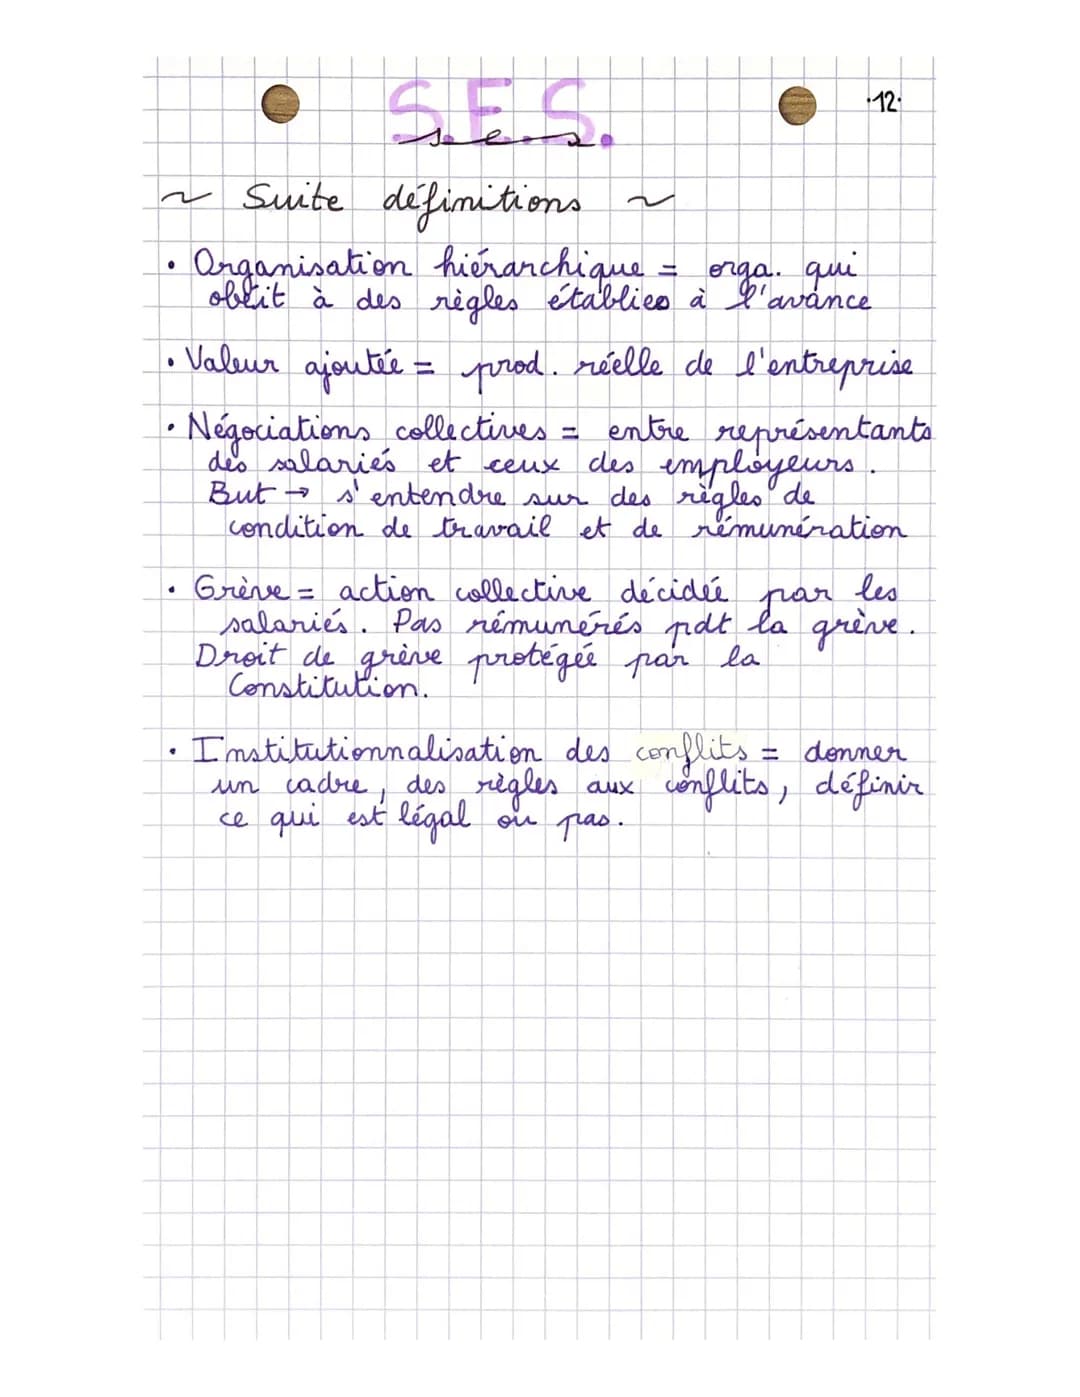 S.E.S.
s.e.s.
·12·
~ Suite définitions ~
• Organisation hiérarchique = orga. qui
obéit à des règles établies à l'avance
• Valeur ajoutée = prod. réelle de l'entreprise
• Négociations collectives = entre représentants
des salariés et ceux des employeurs.
But → s'entendre sur des règles de
condition de travail et de rémunération
• Grève = action collective décidée par les
salariés. Pas rémunérés pdt la grève.
Droit de grève protégée par la
Constitution.
• Institutionnalisation des conflits = donner
un cadre, des règles aux conflits, définir
ce qui est légal ou pas.